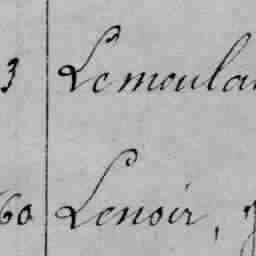 3 Lemoula
60 Lenoir,